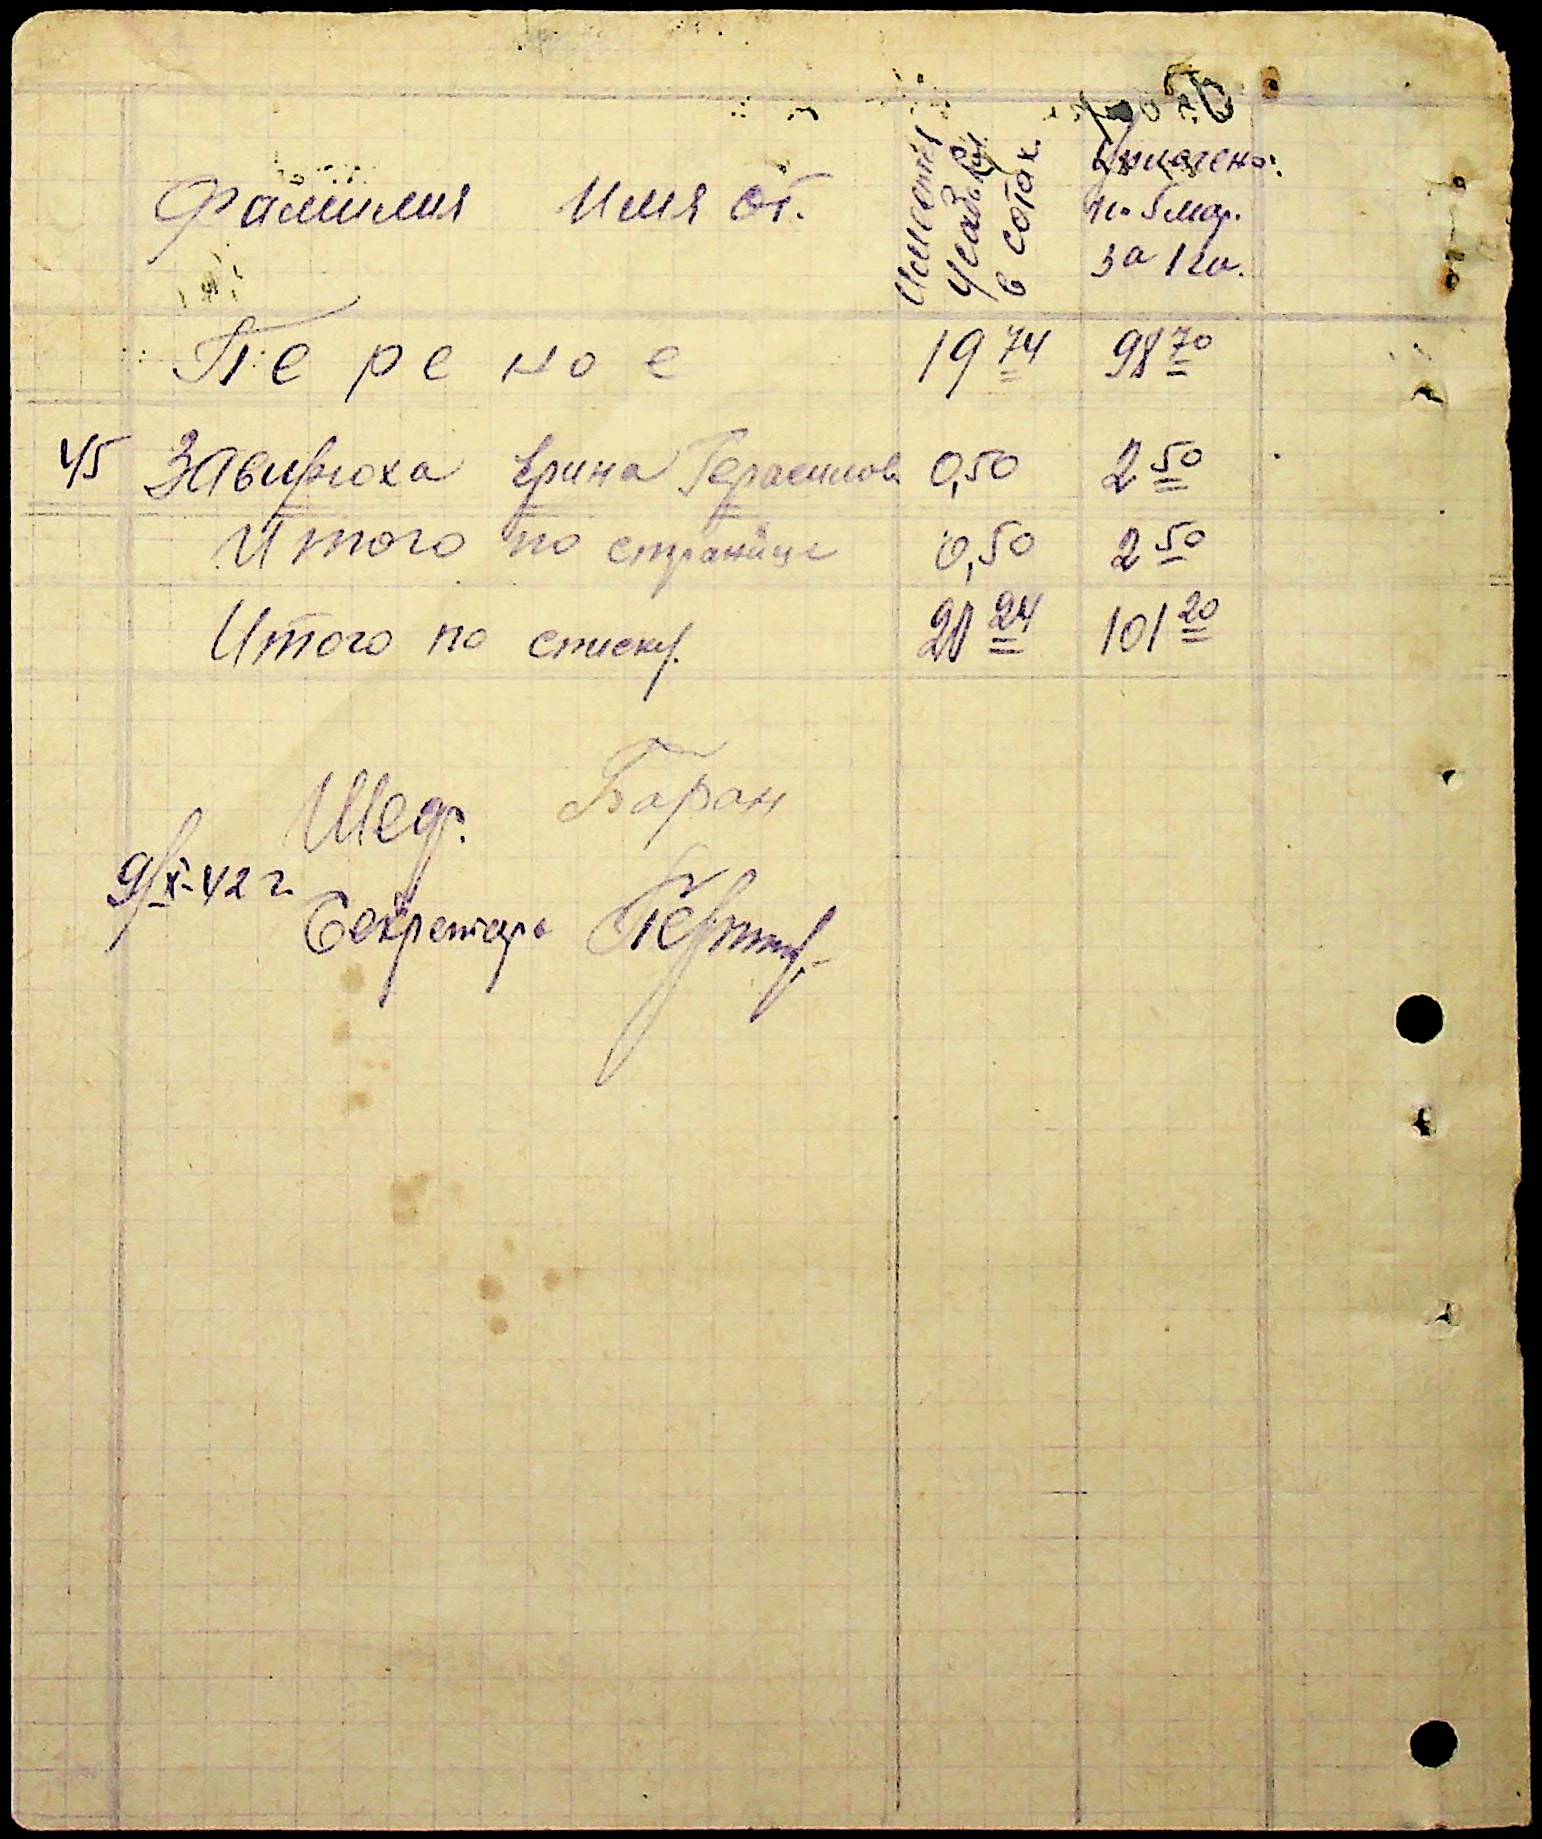 Фамилия Имя От.
Имеет
Усадьбу
в сотах.
Уплочено
по 5 мар.
за 1 га.
Перенос 19 74 98 70
45 Завирюха Ерина Герасимов 0,50 2 50
Итого по странице 0,50 2 50
Итого по списку. 20 24 101 20
Баран
9/X-42 г.
Секретарь